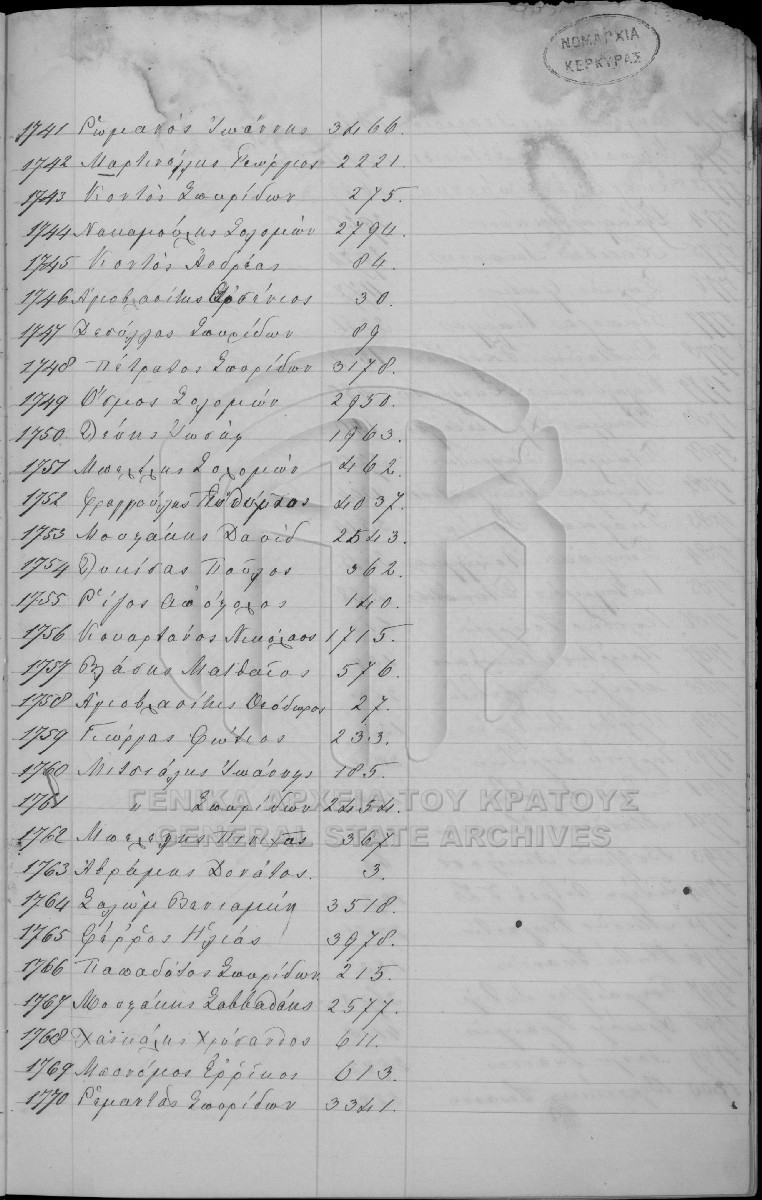 ΝΟΜΑΡΧΙΑ
ΚΕΡΚΥΡΑΣ
1741 Ρωμανός Ιωάννης 3466.
1742 Μαρτινέλλης Γεώργιος 2221.
1743 Κοντός Σπυρίδων 275.
1744 Νακαμούλης Σολομών 2794.
1745 Κοντός Ανδρέας 84.
1746 Αγιοβλασίτης Αρσένιος 30.
1747 Δεσύλλας Σπυρίδων 89
1748 Πέτρατος Σπυρίδων 3178.
1749 Όσμος Σολομών 2950.
1750 Λέσης Ιωσήφ 1963.
1751 Μπελέλης Σολομών 462.
1752 Φραγγούλης Ευθύμιος 4037.
1753 Μουζάκης Δαυίδ 2543.
1754 Λουκίσας Παύλος 362.
1755 Ρείζος Απόστολος 140.
1756 Κουαρτάνος Νικόλαος 1715.
1757 Βλάσης Ματθαίος 576.
1758 Αγιοβλασίτης Θεόδωρος 27.
1759 Γεώργας Φώτιος 233.
1760 Μιτσιάλης Ιωάννης 185.
1761 " Σπυρίδων 2454.
1762 Μπελέλης Πινχάς 367.
1763 Αβράμης Δονάτος. 3.
1764 Σαλώμ Βενιαμίν 3518.
1765 Φέρρος Ηλίας 3978.
1766 Παπαδάτος Σπυρίδων. 215.
1767 Μουζάκης Σαββαθάης 2577.
1768 Χαϊκάλης Χρύσανθος 611.
1769 Μπονόμος Ερρίκος 613.
1770 Ρεμαντάς Σπυρίδων 3341.
ΓΕΝΙΚΑ ΑΡΧΕΙΑ ΤΟΥ ΚΡΑΤΟΥΣ
GENERAL STATE ARCHIVES